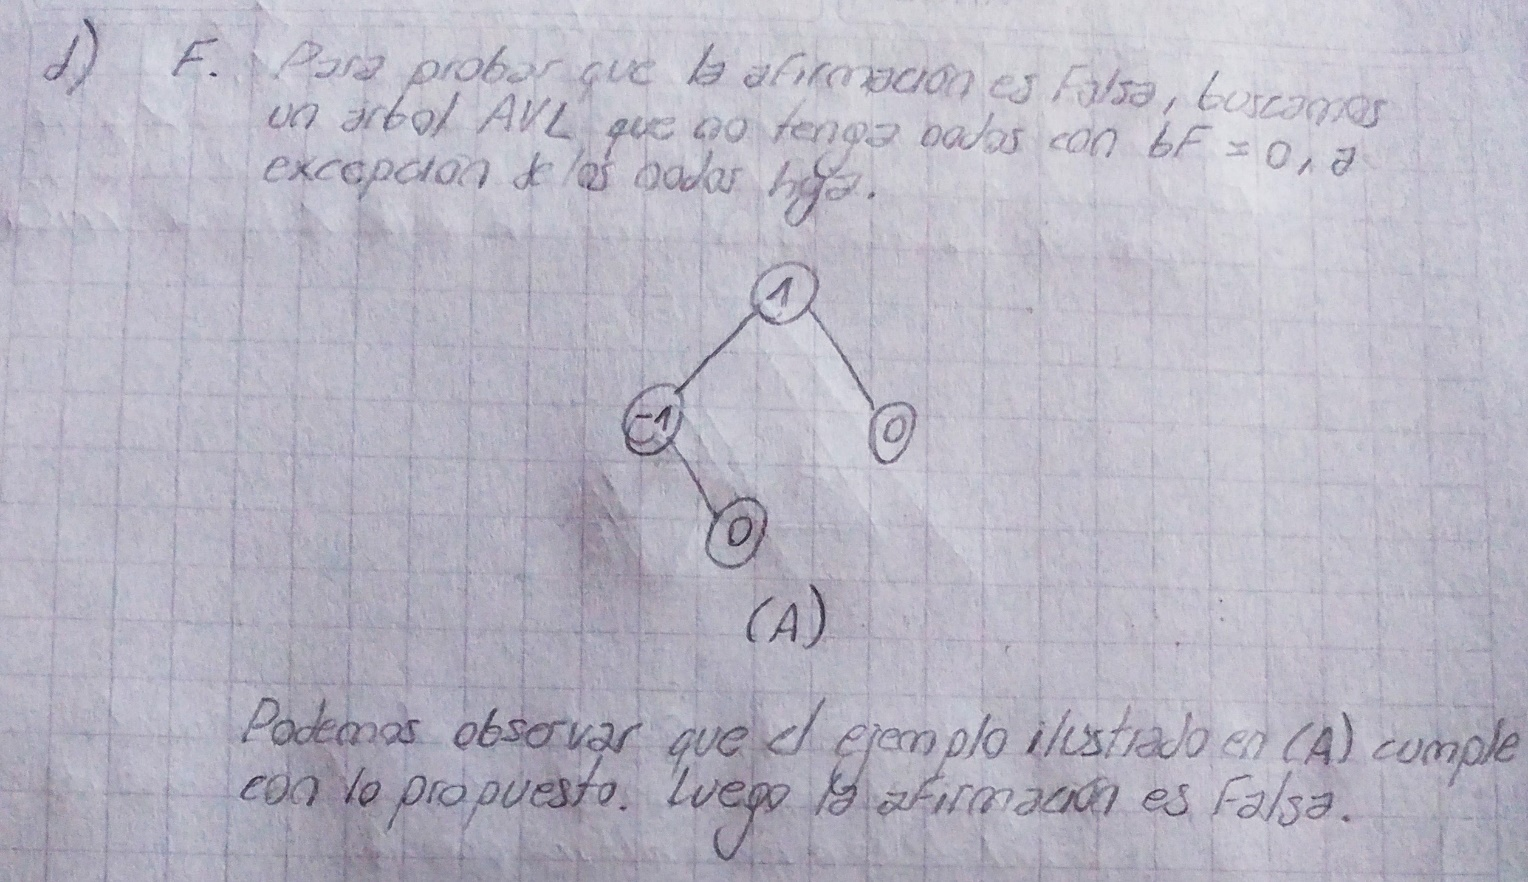 d) F. Para probar que la afirmación es Falsa, buscamos
un arbol AVL que no tenga nodos con bF = 0, a
excepción de los nodos hoja.
1
-1
0
0
(A)
Podemos observar que el ejemplo ilustrado en (A) cumple
con lo propuesto. Luego la afirmación es Falsa.